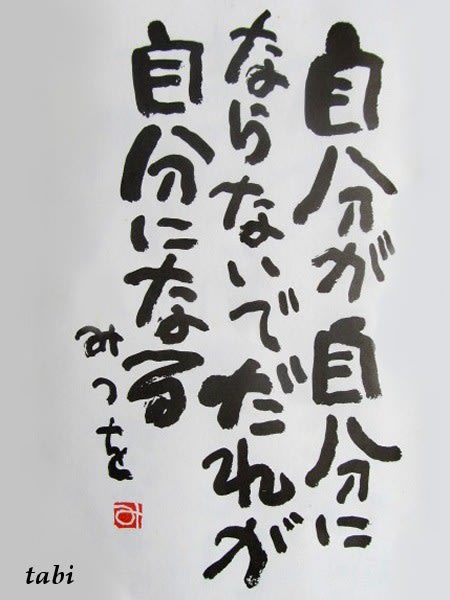 自分が自分に
ならないでだれが
自分になる
みつを
み
tabi